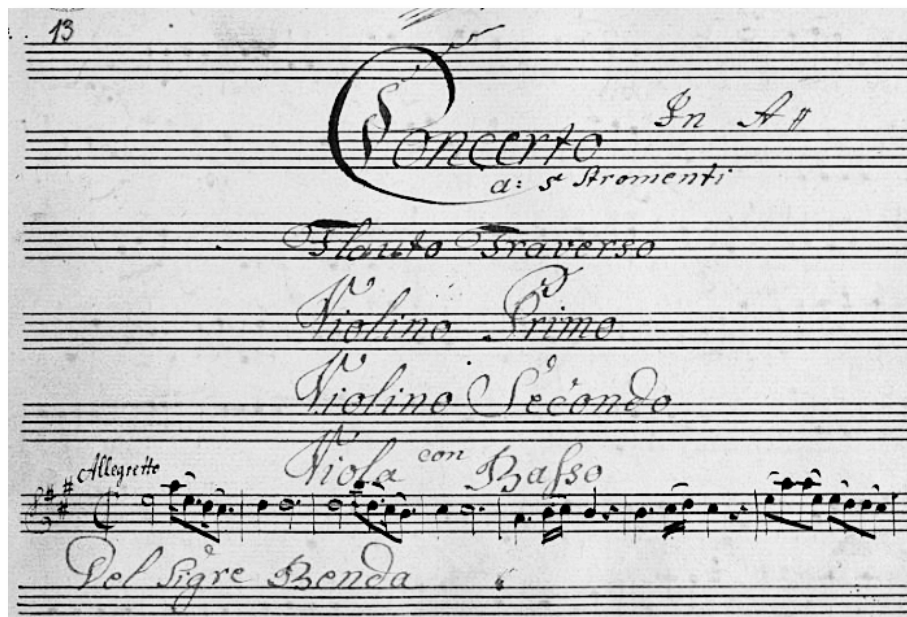 13
Concerto In A#
a: 5 Stromenti
Flauto Traverso
Violino Primo
Violino Secondo
Viola con Basso
Allegretto
Del Sigre Benda